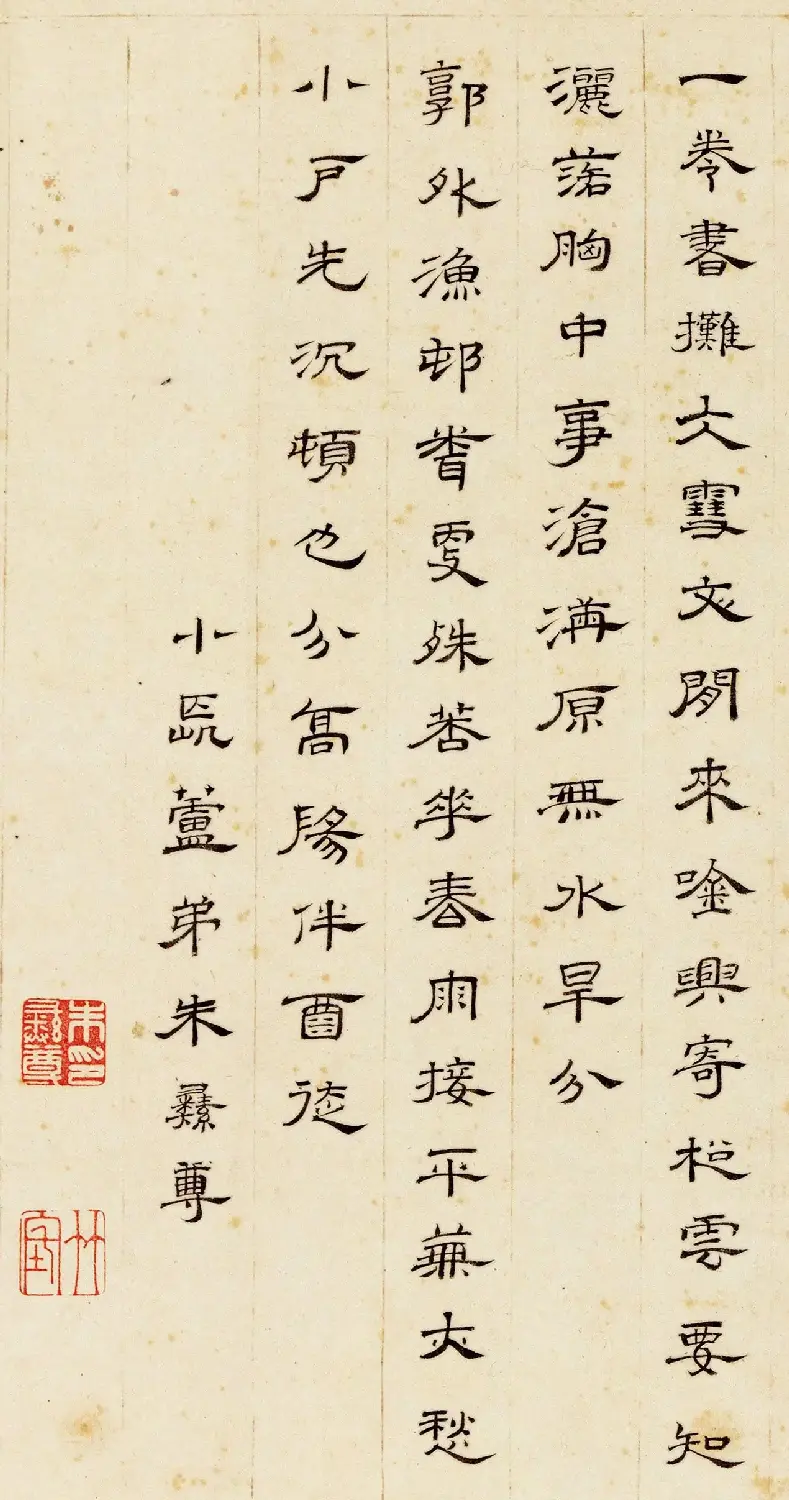 一卷書攤雪文閒來唫興寄松雲要知
灑落胸中事滄海原無水旱分
郭外漁邨看更殊華春雨接平蕪亦愁
小戶先沉頓也分高陽伴酉徒
小長蘆弟朱彝尊
朱彝尊印
竹垞